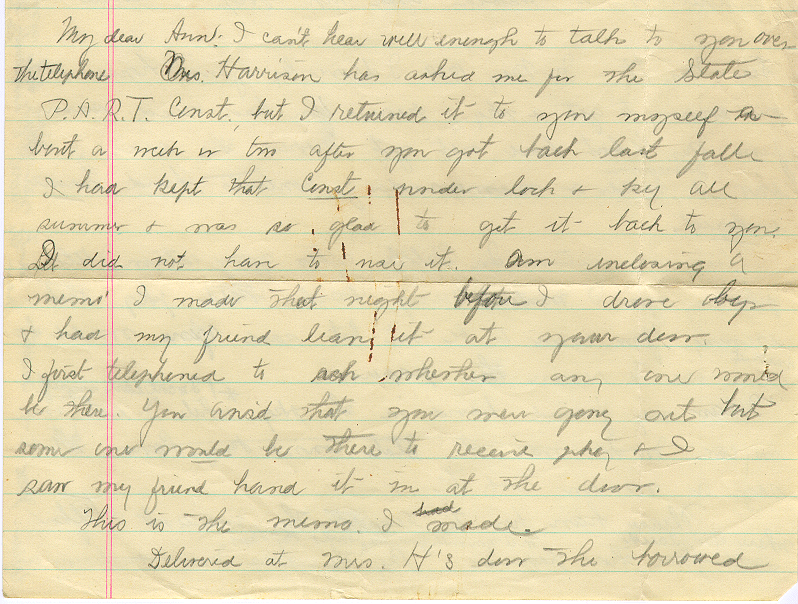 My dear Ann: I can't hear well enough to talk to you over
the telephone Mrs. Harrison has asked me for the State
P.A.R.T. Const., but I returned it to you myself a-
bout a week or two after you got back last fall
I had kept that Const under lock & key all
summer & was so glad to get it back to you.
I did not have to use it. Am inclosing a
memo I made that night before I drove
& had my friend leave it at your door.
I first telephoned to ask whether any one would
be there. You ans'd that you were going out but
some one would be there to receive & I
saw my friend hand it in at the door.
This is the memo. I had made.
Delivered at Mrs. H's door the borrowed